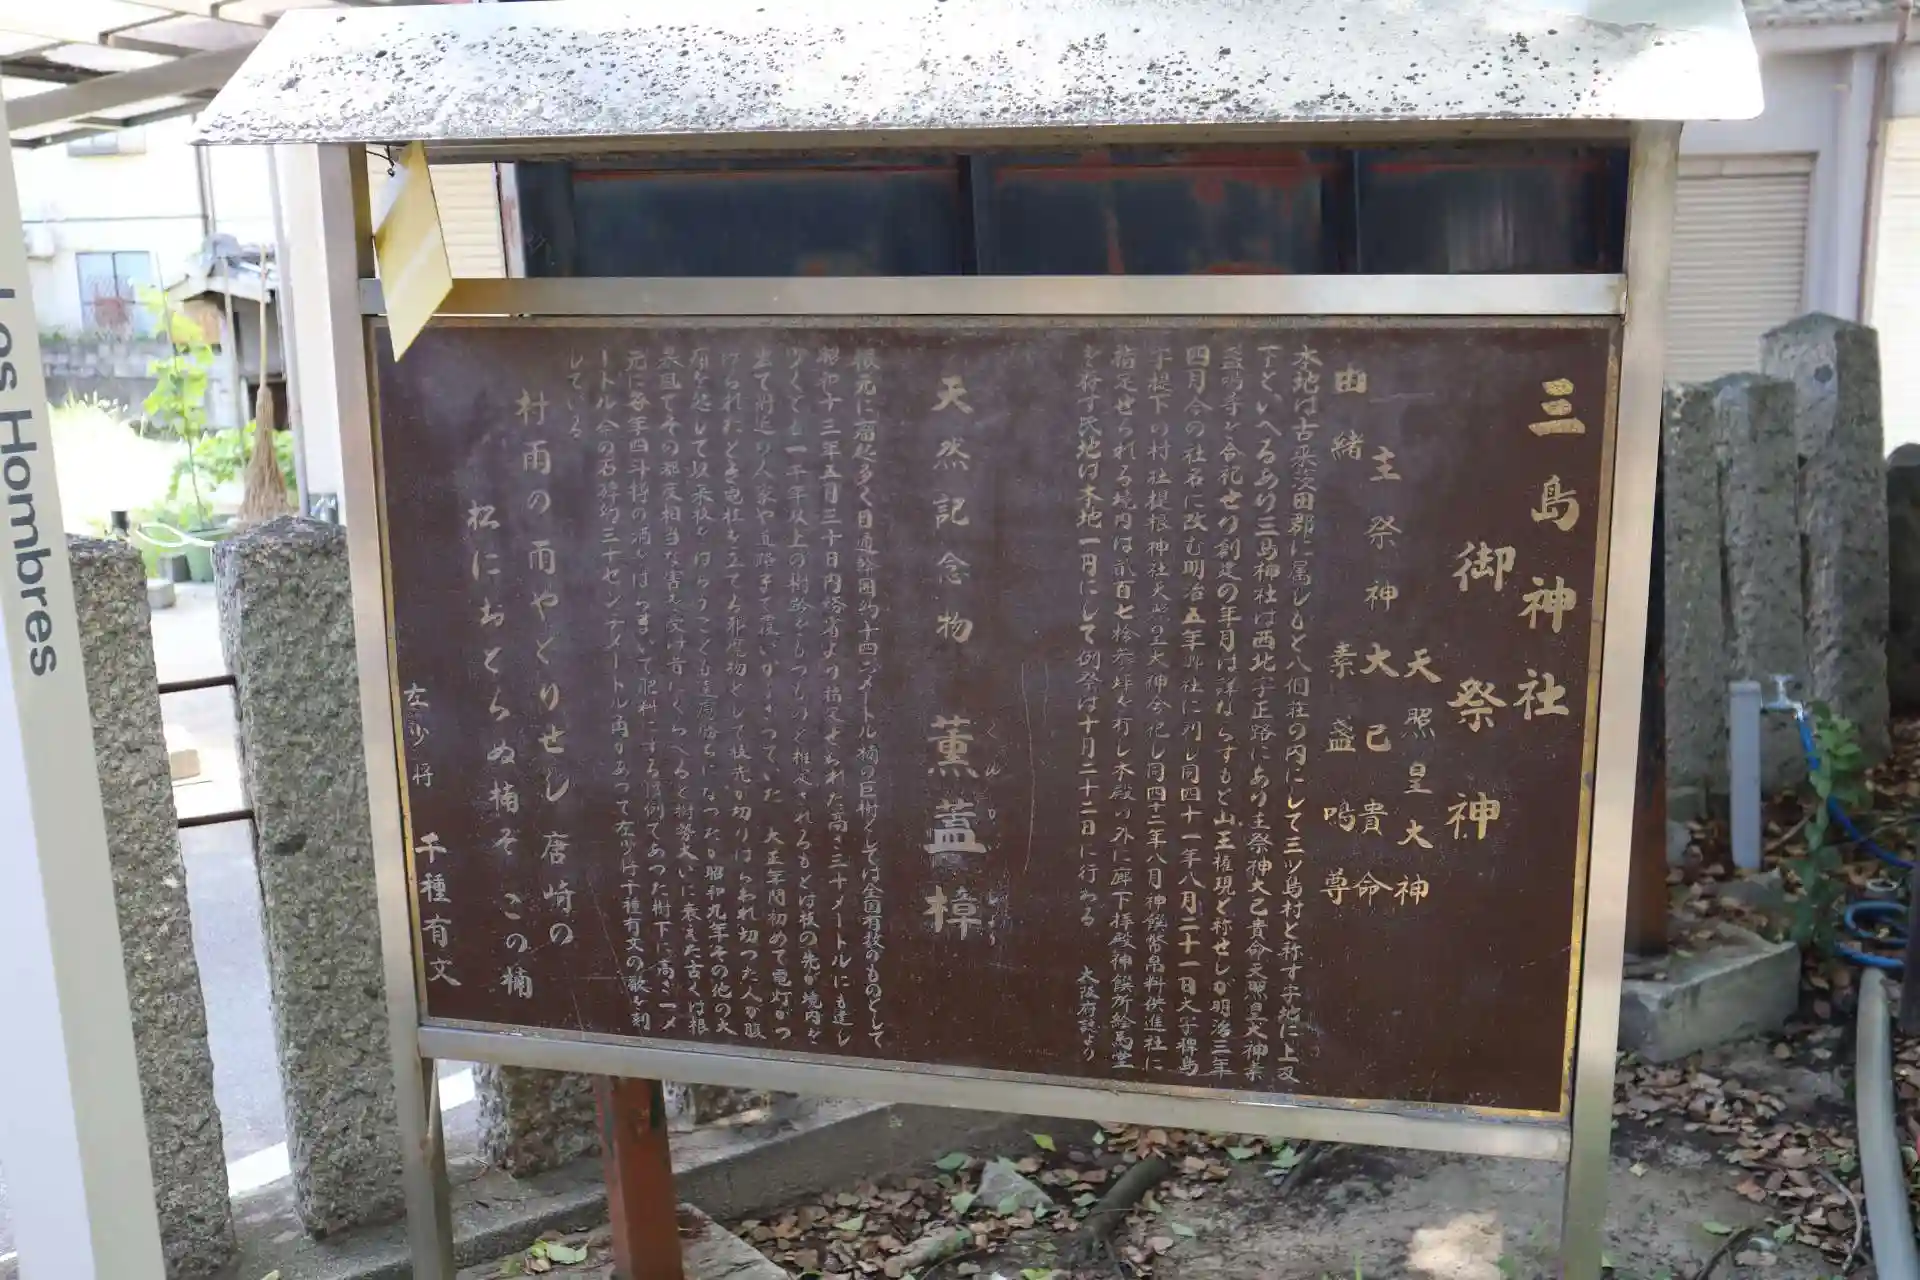 三島神社
御祭神
天照皇大神
主祭神 大己貴命
素盞嗚尊
由緒
本地は古来茨田郡に属しもと八個荘の内にして三ツ島村と称す字地に上又
下といへるあり三島神社は西北字正路にあり主祭神大己貴命天照皇大神素
盞嗚尊を合祀せり創建の年月は詳ならずもと山王権現と称せしが明治三年
四月今の社名に改む明治五年 社に列し同四十一年八月二十一日大字稗島
字堤下の村社堤根神社 大神合祀し同四十二年八月神饌幣帛料供進社に
指定せられる境内は弐百七拾参坪を有し本殿の外に 下拝殿神饌所絵馬堂
を存す氏地は本地一円にして例祭は十月二十二日に行わる 大阪府誌より
天然記念物 薫蓋樟
くんがいしょう
根元に瘤起多く目通幹囲約十四メートル楠の巨樹としては全国有数のものとして
昭和十三年五月三十日内務省より指定せられた高さ三十メートルにも達し
少くとも一千年以上の樹齢をもつものと推定されるもとは枝の先が境内を
出て附近の人家や道路まで覆いかぶさっていた 大正年間初めて電灯がつ
けられたとき電柱を立てる邪魔物として枝先が切りはらわれ切った人が腹
痛を起して以来枝をはらうことも遠慮勝ちになったが昭和九年その他の大
暴風でその都度相当な害を受け昔にくらべると樹勢大いに衰えた古くは根
元に毎年四斗樽の酒をはらまいて肥料にする慣例であった樹下に高さ一メ
ートル余の石碑約三十センチメートル角があって左少将千種有文の歌を刻
している
村雨の雨やどりせし唐崎の
松におとらぬ楠ぞこの楠
左少将 千種有文
Los Hombres